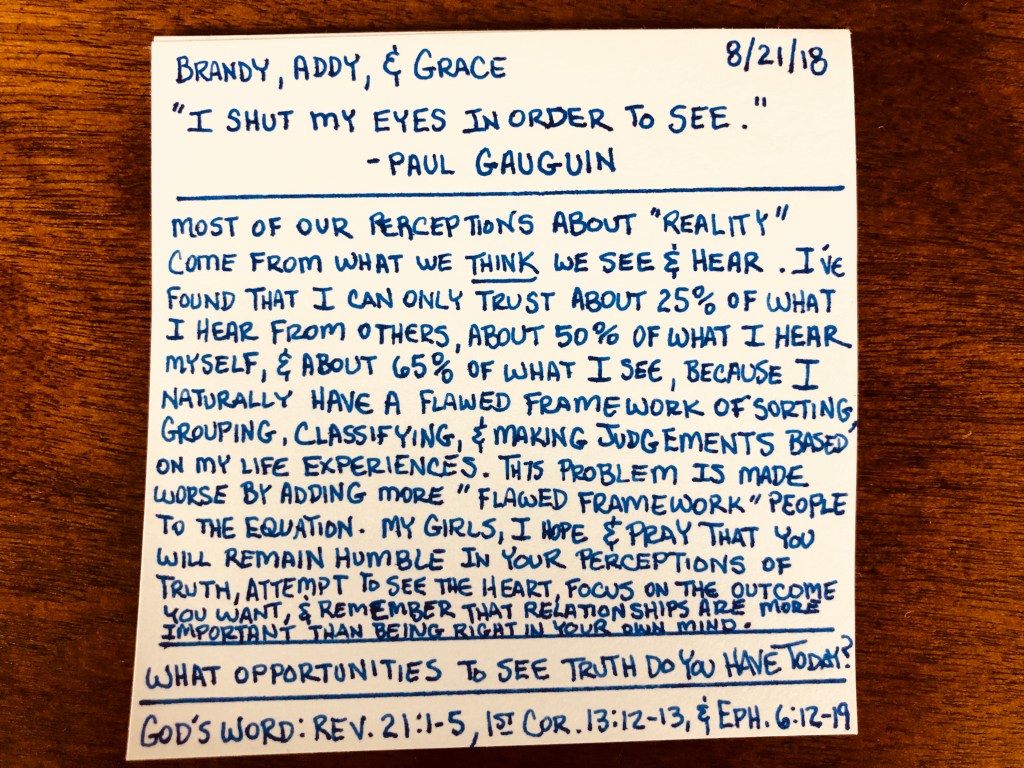 BRANDY, ADDY, & GRACE 8/21/18
"I SHUT MY EYES IN ORDER TO SEE."
- PAUL GAUGUIN
MOST OF OUR PERCEPTIONS ABOUT "REALITY"
COME FROM WHAT WE THINK WE SEE & HEAR. I'VE
FOUND THAT I CAN ONLY TRUST ABOUT 25% OF WHAT
I HEAR FROM OTHERS, ABOUT 50% OF WHAT I HEAR
MYSELF, & ABOUT 65% OF WHAT I SEE, BECAUSE I
NATURALLY HAVE A FLAWED FRAMEWORK OF SORTING,
GROUPING, CLASSIFYING, & MAKING JUDGEMENTS BASED
ON MY LIFE EXPERIENCES. THIS PROBLEM IS MADE
WORSE BY ADDING MORE "FLAWED FRAMEWORK" PEOPLE
TO THE EQUATION. MY GIRLS, I HOPE & PRAY THAT YOU
WILL REMAIN HUMBLE IN YOUR PERCEPTIONS OF
TRUTH, ATTEMPT TO SEE THE HEART, FOCUS ON THE OUTCOME
YOU WANT, & REMEMBER THAT RELATIONSHIPS ARE MORE
IMPORTANT THAN BEING RIGHT IN YOUR OWN MIND.
WHAT OPPORTUNITIES TO SEE TRUTH DO YOU HAVE TODAY?
GOD'S WORD: REV. 21:1-5, 1ST COR. 13:12-13, & EPH. 6:12-19